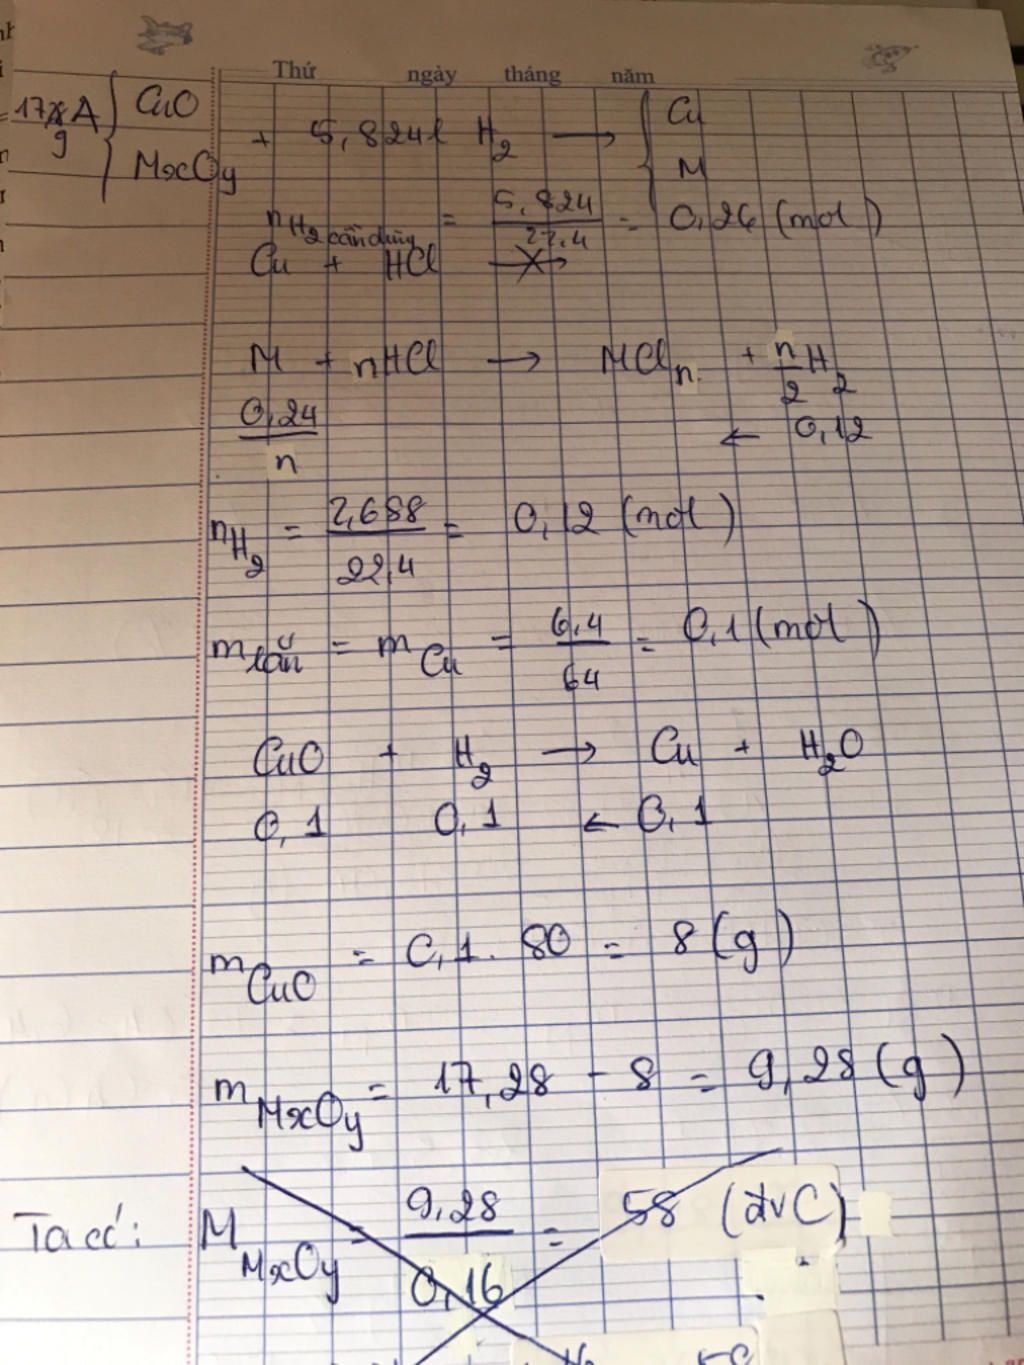 Thứ ngày tháng năm
17,28 g A { CuO MxOy + 5,824l H2 → { Cu M
nH2 cần dùng = 5,824/22,4 = 0,26 (mol)
Cu + HCl
M + nHCl → MCln + n/2 H2
0,24/n ← 0,12
nH2 = 2,688/22,4 = 0,12 (mol)
m rắn = mCu = 6,4/64 = 0,1 (mol)
CuO + H2 → Cu + H2O
0,1 0,1 ← 0,1
mCuO = 0,1. 80 = 8 (g)
mMxOy = 17,28 - 8 = 9,28 (g)
Ta có: MMxOy = 9,28/0,16 = 58 (đvC)